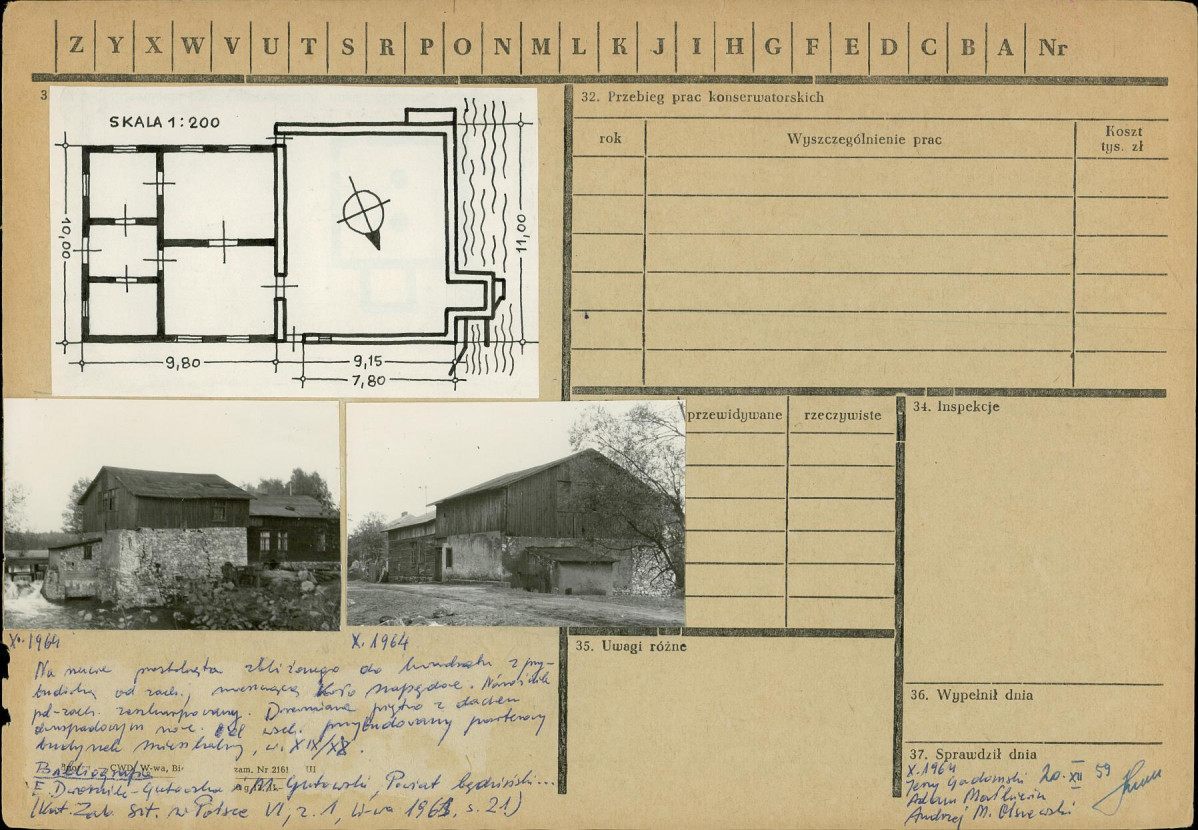 Z Y X W V U T S R P O N M L K J I H G F E D C B A Nr
3
SKALA 1:200
10,00
11,00
9,80
9,15
7,80
32. Przebieg prac konserwatorskich
rok
Wyszczególnienie prac
Koszt
tys. zł
przewidywane
rzeczywiste
34. Inspekcje
X. 1964
X. 1964
Na rzucie prostokąta zbliżonego do kwadratu z przy-
budówką od zach., mieszczącą koło napędowe. Narożnik
pd-zach. zeszkarpowany. Drewniane piętro z dachem
dwuspadowym nowe. Od wsch. przybudowany parterowy
budynek mieszkalny, w. XIX/XX.
Bibliografia
CWD W-wa, zam. Nr 2161
E. Dwornik-Gutowska M. Gutowski, Powiat będziński...
(Kat. Zab. Szt. w Polsce VI, z. 1, W-wa 1961, s. 21)
35. Uwagi różne
36. Wypełnił dnia
37. Sprawdził dnia
X. 1964
Jerzy Gadomski 20. XII 59
Adam Małkiewicz
Andrzej M. Olszewski